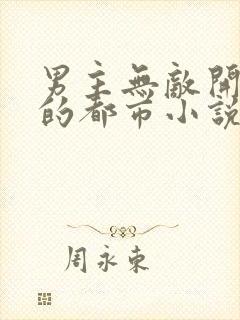 男主無敵開
的都市小說
周永東